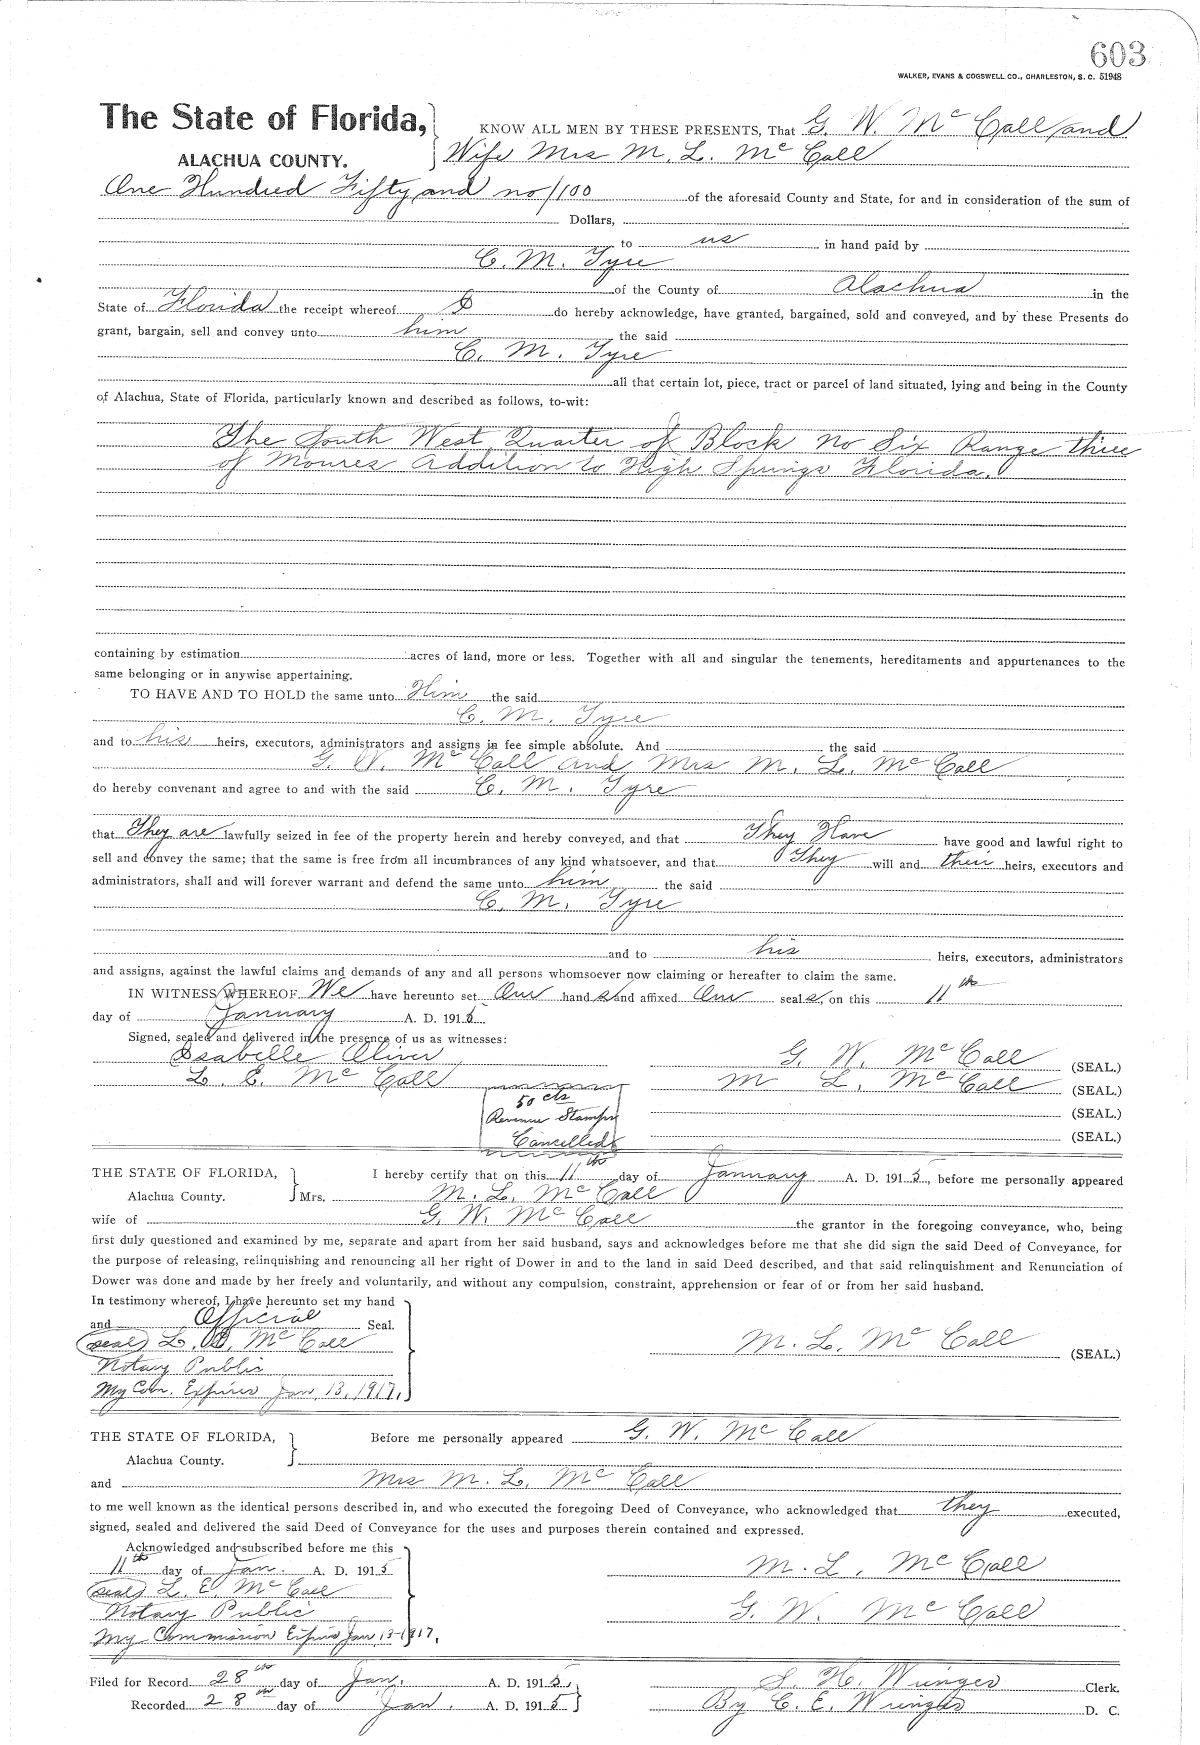 603
WALKER, EVANS & COGSWELL CO., CHARLESTON, S. C. 51948
The State of Florida, KNOW ALL MEN BY THESE PRESENTS, That G. W. McCall and
ALACHUA COUNTY. Wife Mrs M. L. McCall
One Hundred Fifty and no/100 of the aforesaid County and State, for and in consideration of the sum of
Dollars,
to us in hand paid by
C. M. Tyre
of the County of Alachua in the
State of Florida the receipt whereof do hereby acknowledge, have granted, bargained, sold and conveyed, and by these Presents do
grant, bargain, sell and convey unto him the said
C. M. Tyre
all that certain lot, piece, tract or parcel of land situated, lying and being in the County
of Alachua, State of Florida, particularly known and described as follows, to-wit:
The South West Quarter of Block No Six Range three
of Moures Addition to High Springs Florida.
containing by estimation acres of land, more or less. Together with all and singular the tenements, hereditaments and appurtenances to the
same belonging or in anywise appertaining.
TO HAVE AND TO HOLD the same unto Him the said
C. M. Tyre
and to his heirs, executors, administrators and assigns in fee simple absolute. And the said
G. W. McCall and Mrs M. L. McCall
do hereby convenant and agree to and with the said C. M. Tyre
that They are lawfully seized in fee of the property herein and hereby conveyed, and that They Have have good and lawful right to
sell and convey the same; that the same is free from all incumbrances of any kind whatsoever, and that They will and their heirs, executors and
administrators, shall and will forever warrant and defend the same unto him the said
C. M. Tyre
and to his heirs, executors, administrators
and assigns, against the lawful claims and demands of any and all persons whomsoever now claiming or hereafter to claim the same.
IN WITNESS WHEREOF We have hereunto set Our hand s and affixed Our seal s, on this 11th
day of January A. D. 1915
Signed, sealed and delivered in the presence of us as witnesses:
Isabelle Oliver G. W. McCall (SEAL.)
L. E. McCall M L. McCall (SEAL.)
50 cts (SEAL.)
Revenue Stamps
Cancelled (SEAL.)
THE STATE OF FLORIDA, I hereby certify that on this 11th day of January A. D. 1915, before me personally appeared
Alachua County. Mrs. M. L. McCall
wife of G. W. McCall the grantor in the foregoing conveyance, who, being
first duly questioned and examined by me, separate and apart from her said husband, says and acknowledges before me that she did sign the said Deed of Conveyance, for
the purpose of releasing, relinquishing and renouncing all her right of Dower in and to the land in said Deed described, and that said relinquishment and Renunciation of
Dower was done and made by her freely and voluntarily, and without any compulsion, constraint, apprehension or fear of or from her said husband.
In testimony whereof, I have hereunto set my hand
and Official Seal.
(seal) L. E. McCall M. L. McCall (SEAL.)
Notary Public
My Com. Expires Jan. 13, 1917.
THE STATE OF FLORIDA, Before me personally appeared G. W. McCall
Alachua County.
and Mrs M. L. McCall
to me well known as the identical persons described in, and who executed the foregoing Deed of Conveyance, who acknowledged that they executed,
signed, sealed and delivered the said Deed of Conveyance for the uses and purposes therein contained and expressed.
Acknowledged and subscribed before me this
11th day of Jan. A. D. 1915 M. L. McCall
(seal) L. E. McCall
Notary Public G. W. McCall
My Commission Expires Jan 13-1917.
Filed for Record 28th day of Jan. A. D. 1915, S. H. Wienges Clerk.
Recorded 28th day of Jan. A. D. 1915 By C. E. Wienges D. C.